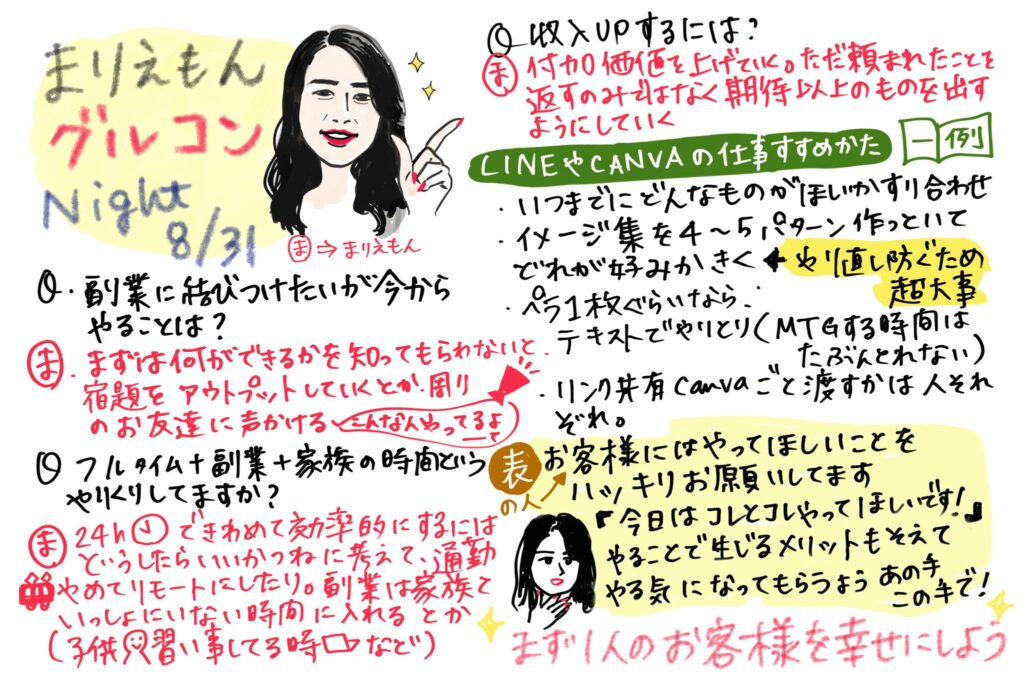 まりえもん
グルコン
Night
8/31
ま⇒まりえもん
Q. 副業に結びつけたいが今から
やることは?
ま. まずは何ができるかを知ってもらわないと
宿題を アウトプットしていくとか、周り
のお友達に声かける こんなんやってるよ
て
Q フルタイム+副業+家族の時間という
やりくりしてますか?
ま 24h できわめて効率的にするには
どうしたらいいかつねに考えて、通勤
やめてリモートにしたり。副業は家族と
いっしょにいない時間に入れる とか
(子供 習い事してる時 など)
Q 収入UPするには?
ま 付加価値を上げていく。ただ頼まれたことを
返すのみではなく期待以上のものを出す
ようにしていく
LINEやCANVAの仕事すすめかた
一例
・いつまでにどんなものがほしいかすり合わせ
・イメージ集を4〜5パターン作っといて
どれが好みかきく ← やり直し防ぐため
超大事
・ペラ1枚ぐらいなら、
テキストでやりとり(MTGする時間は
たぶんとれない)
・リンク共有canvaごと渡すかは人それ
ぞれ。
表の人
お客様にはやってほしいことを
ハッキリお願いしてます
『今日はコレとコレやってほしいです!』
やることで生じるメリットもそえて
やる気になってもらうよう あの手
この手で!
まず1人のお客様を幸せにしよう